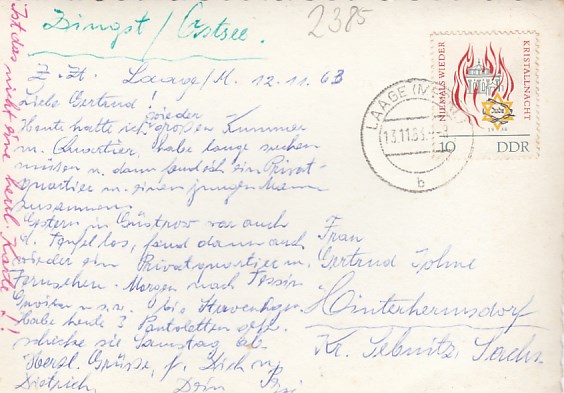 Zingst / Ostsee.
2385
Z. Zt. Laage/M. 12.11.63
Liebe Gertrud!
wieder
Heute hatte ich großen Kummer
m. Quartier, habe lange suchen
müssen u. dann fand ich ein Privat-
quartier m. einem jungen Mann
zusammen.
Gestern in Güstrow war auch
d. Teufel los, fand dann auch
wieder ein Privatquartier m.
Fernsehen. Morgen nach Tessin
Gnoien u.s.w. bis
Habe heute 3 Pantoletten
schicke sie Samstag ab.
Herzl. Grüsse, f. Dich u.
Dietrich, Dein
Ist das nicht eine herrl. Karte?!
NIEMALS WIEDER
KRISTALLNACHT
Jude
1938
10 DDR
LAAGE (M
13.11.63
b
Frau
Gertrud
Hinterhermsdorf
Kr. Sebnitz, Sachs.